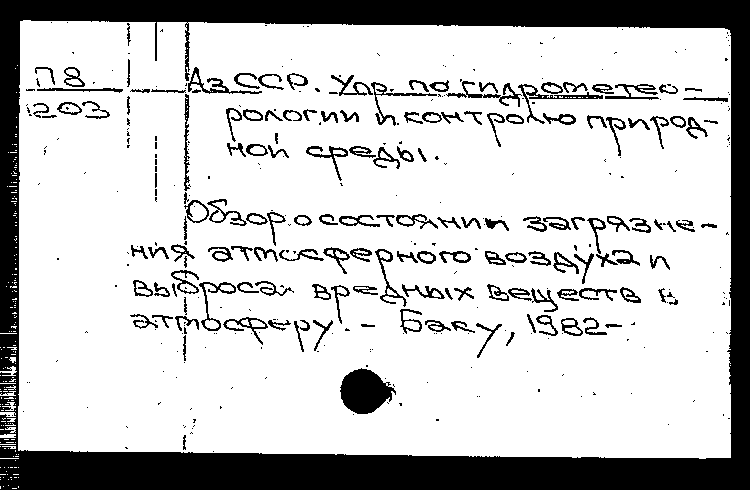 П8
1203
АзССР. Упр. по гидрометео-
рологии и контролю природ-
ной среды.
Обзор о состоянии загрязне-
ния атмосферного воздуха и
выбросах вредных веществ в
атмосферу. - Баку, 1982-